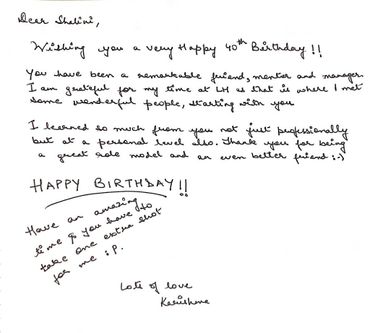 Dear Shelini,
Wishing you a very Happy 40th Birthday!!
You have been a remarkable friend, mentor and manager.
I am grateful for my time at LH as that is where I met
some wonderful people, starting with you
I learned so much from you not just professionally
but at a personal level also. Thank you for being
a great role model and an even better friend :-)
HAPPY BIRTHDAY!!
Have an amazing
time & you have to
take one extra shot
for me :P.
Lots of love